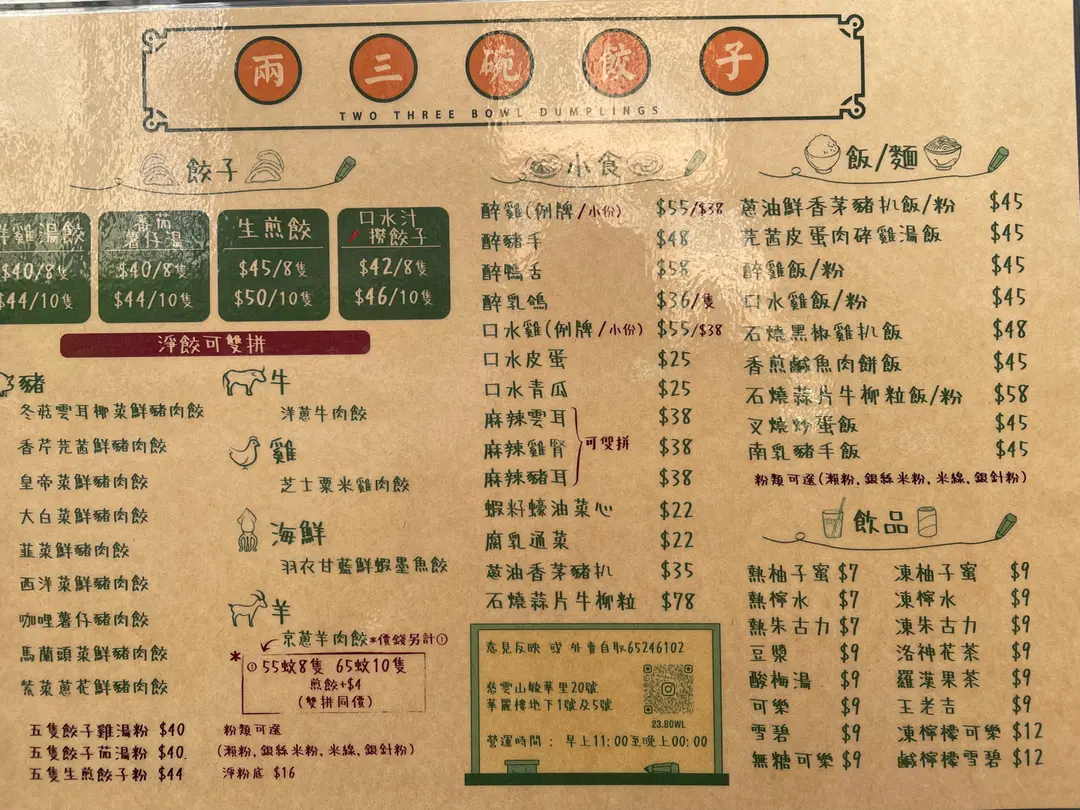 兩三碗餃子
TWO THREE BOWL DUMPLINGS
餃子
雞湯餃
$40/8隻
$44/10隻
番茄薯仔湯
$40/8隻
$44/10隻
生煎餃
$45/8隻
$50/10隻
口水汁撈餃子
$42/8隻
$46/10隻
淨餃可雙拼
豬
冬菇雲耳椰菜鮮豬肉餃
香芹芫茜鮮豬肉餃
皇帝菜鮮豬肉餃
大白菜鮮豬肉餃
韮菜鮮豬肉餃
西洋菜鮮豬肉餃
咖哩薯仔豬肉餃
馬蘭頭菜鮮豬肉餃
紫菜蔥花鮮豬肉餃
牛
洋蔥牛肉餃
雞
芝士粟米雞肉餃
海鮮
羽衣甘藍鮮蝦墨魚餃
羊
京蔥羊肉餃*價錢另計①
*①55蚊8隻 65蚊10隻
煎餃+$4
(雙拼同價)
五隻餃子雞湯粉 $40
五隻餃子茄湯粉 $40
五隻生煎餃子粉 $44
粉類可選
(瀨粉,銀絲米粉,米線,銀針粉)
淨粉底 $16
小食
醉雞(例牌/小份) $55/$38
醉豬手 $48
醉鴨舌 $58
醉乳鴿 $36/隻
口水雞(例牌/小份) $55/$38
口水皮蛋 $25
口水青瓜 $25
麻辣雲耳 $38
麻辣雞腎 $38
麻辣豬耳 $38
可雙拼
蝦籽蠔油菜心 $22
腐乳通菜 $22
蔥油香茅豬扒 $35
石燒蒜片牛柳粒 $78
意見反映 或 外賣自取65246102
慈雲山毓華里20號
華麗樓地下1號及5號
23.BOWL
營運時間: 早上11:00至晚上00:00
飯/麵
蔥油鮮香茅豬扒飯/粉 $45
芫茜皮蛋肉碎雞湯飯 $45
醉雞飯/粉 $45
口水雞飯/粉 $45
石燒黑椒雞扒飯 $48
香煎鹹魚肉餅飯 $45
石燒蒜片牛柳粒飯/粉 $58
叉燒炒蛋飯 $45
南乳豬手飯 $45
粉類可選(瀨粉,銀絲米粉,米線,銀針粉)
飲品
熱柚子蜜 $7
熱檸水 $7
熱朱古力 $7
豆漿 $9
酸梅湯 $9
可樂 $9
雪碧 $9
無糖可樂 $9
凍柚子蜜 $9
凍檸水 $9
凍朱古力 $9
洛神花茶 $9
羅漢果茶 $9
王老吉 $9
凍檸檬可樂 $12
鹹檸檬雪碧 $12